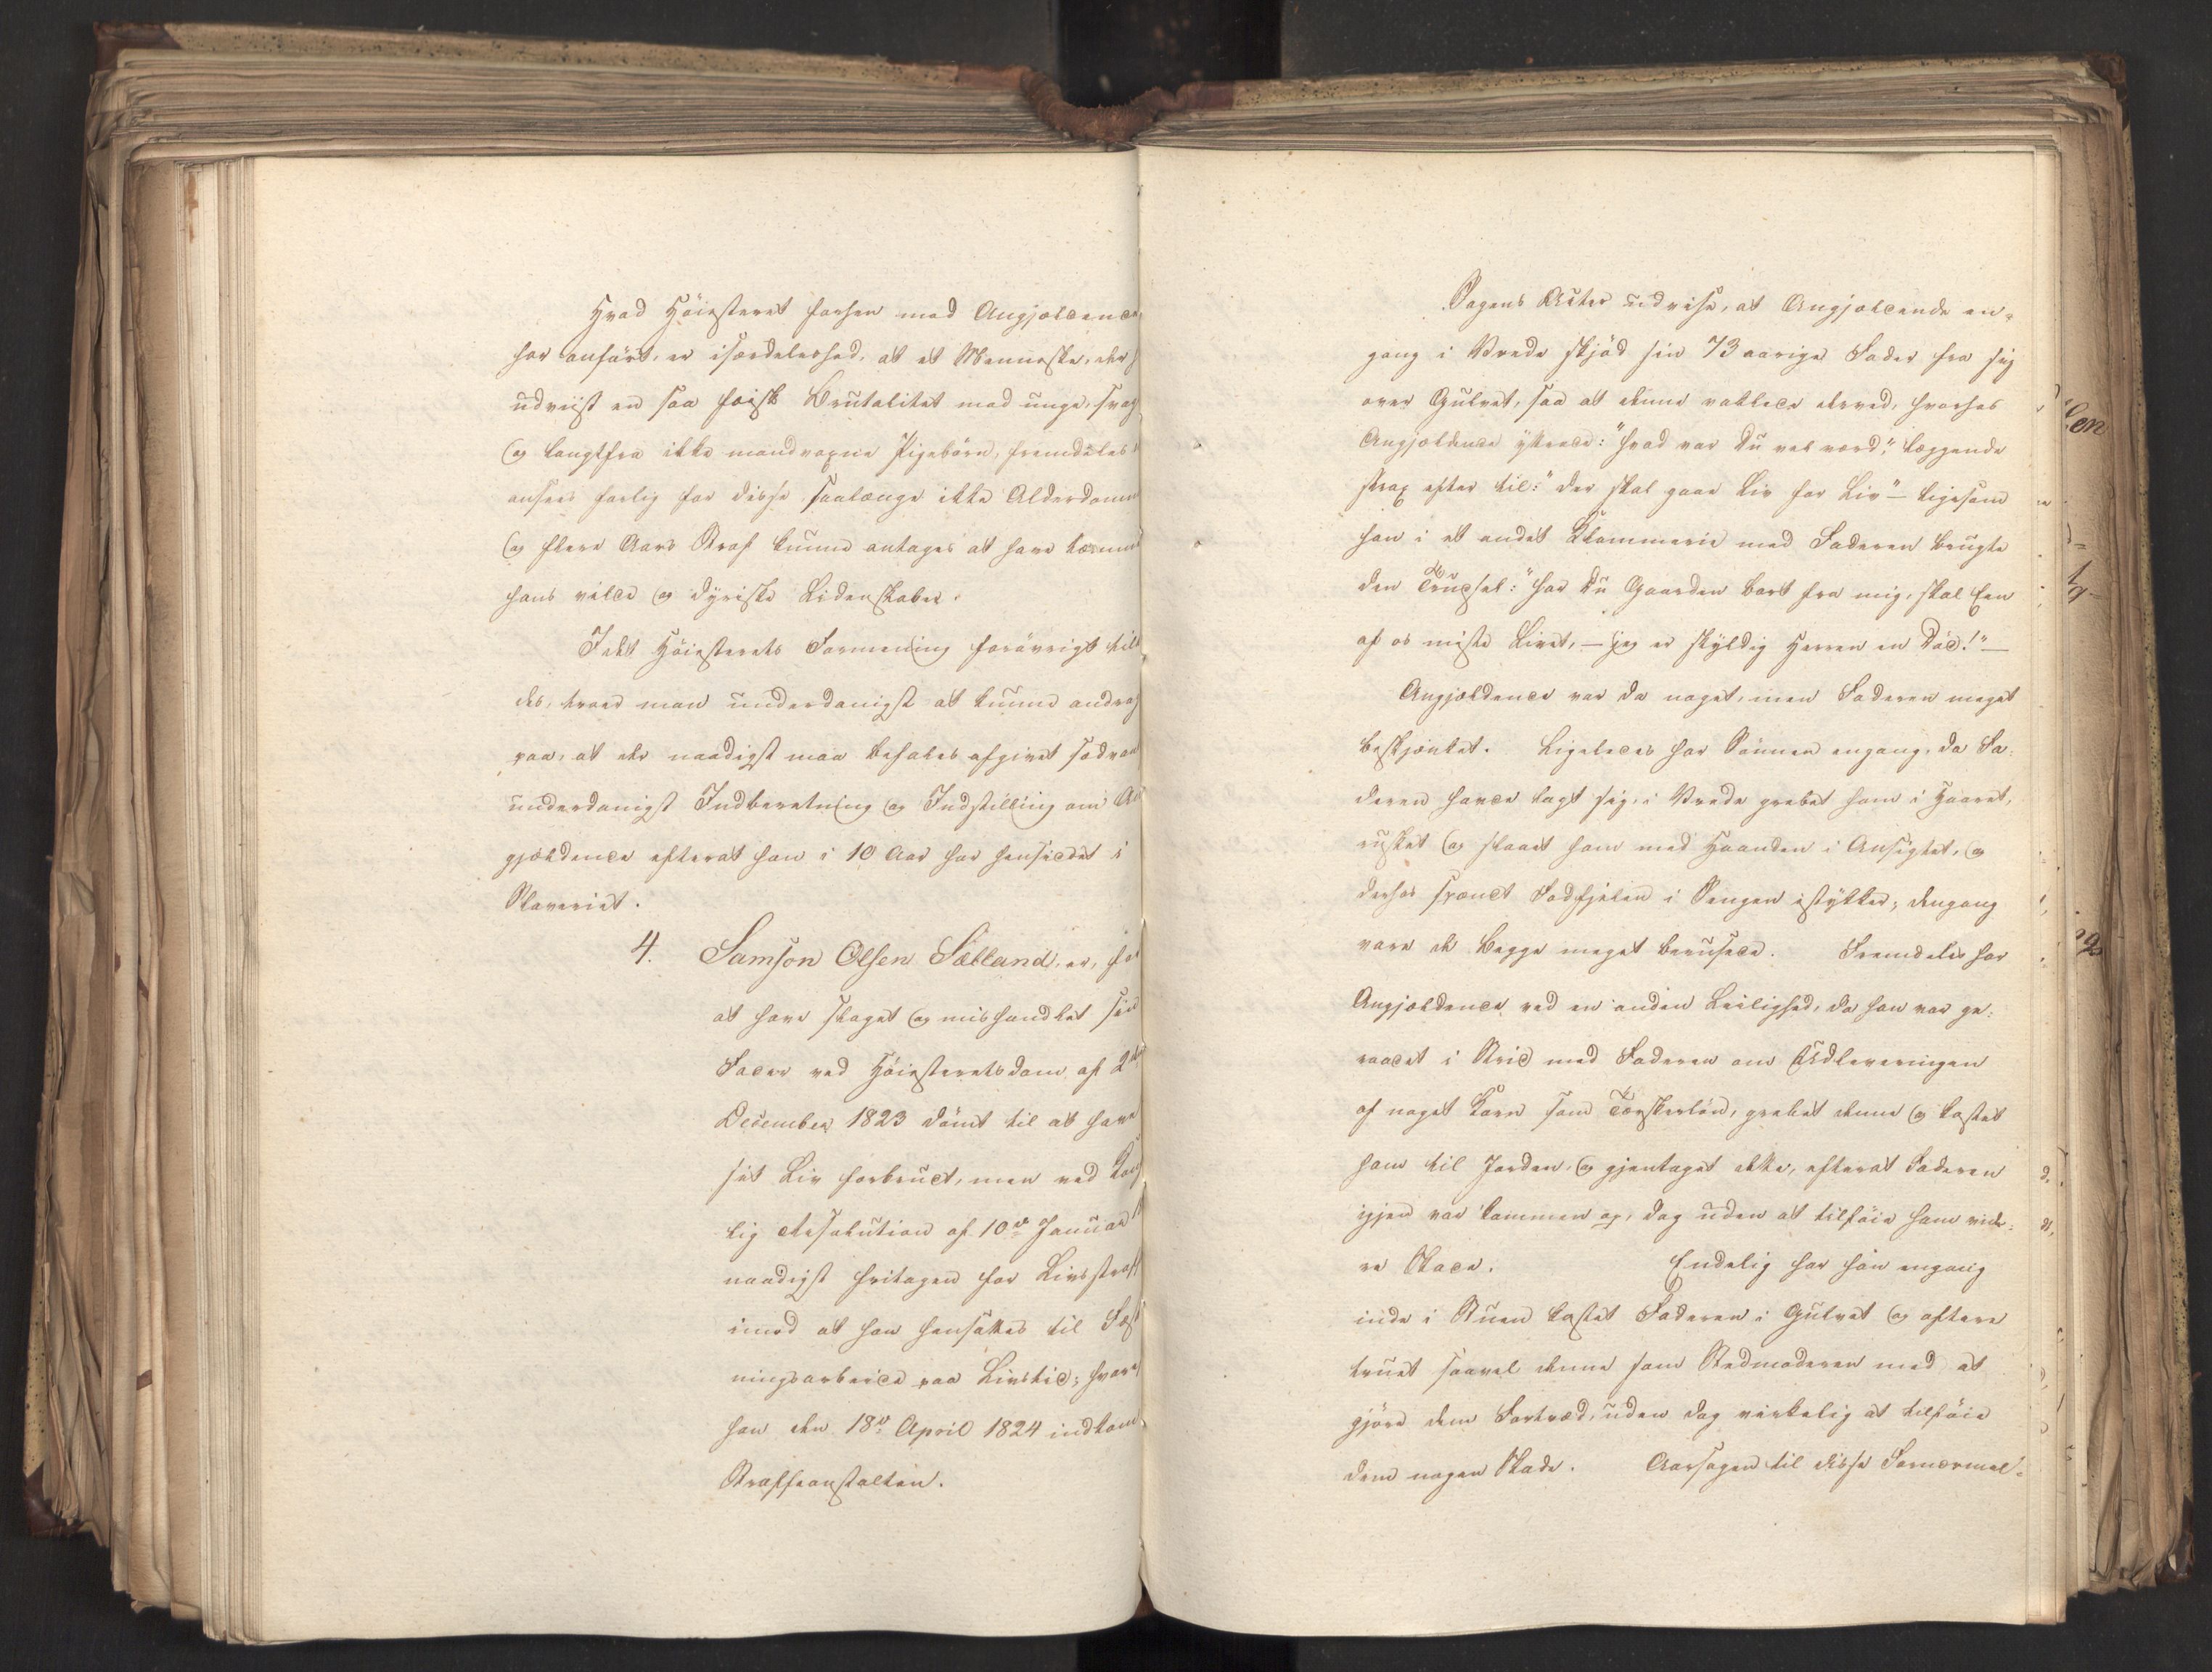 Hvad Höiesteret forhen mod Angjældende
har anført, er isærdeleshed, at et Menneske, der
udviist en saa fæisk Brutalitet mod unge, svag
og langtfra ikke mandvoxne Pigebörn, fremdeles
ansees farlig for disse saalænge ikke Alderdomm
og flere Aars Straf kunne antages at have tæmmet
hans vilde og dyriske Lidenskaber.
I det Höiesterets Formening forövrigt tilt
des, troer man underdanigst at kunne andrag
paa, at der naadigst maa befales afgivet sædvan
underdanigst Indberetning og Indstilling om An
gjældende efterat han i 10 Aar har hensiddet i
Slaveriet.
4. Samson Olsen Sælland, er, for
at have slaget og mishandlet sin
Fader ved Höiesteretsdom af 2den
December 1823 dömt til at have
sit Liv forbrudt, men ved Kong
lig Resolution af 10de Januar
naadigst fritagen for Livsstraff
imod at han hensættes til Fæst
ningsarbeide paa Livstid; hvor
han den 18de April 1824 indkom
Straffeanstalten.
Sagens Acter udvise, at Angjældende en-
gang i Vrede skjød sin 73 aarige Fader fra sig
over Gulvet, saa at denne raklede derved, hvorhos
Angjældende yttrede: "hvad var Du vel værd", læggende
strax efter til: "der skal gaae Liv for Liv" - ligesom
han i et andet Klammerie med Faderen brugte
den Trudsel: "har Du Gaarden bort fra mig, skal Een
af os miste Livet, - jeg er skyldig Herren en Död!" -
Angjældende var da noget, men Faderen meget
beskjænket. Ligeledes har Sönnen engang, da Fa-
deren havde lagt sig, i Vrede grebet ham i Haaret,
rusket og slaaet ham med Haanden i Ansigtet, og
derhos spændt Fodfjælen i Sengen istykker; dengang
vare de begge meget berusede. Fremdeles har
Angjældende ved en anden Leilighed, da han var ge-
raadet i Strid med Faderen om Udleveringen
af noget Korn som Tærskerlön, grebet denne og kastet
ham til Jorden, og gjentaget dette, efterat Faderen
igjen var kommen op, dog uden at tilföie ham vide-
re Skade. Endelig har han engang
inde i Stuen kastet Faderen i Gulvet og oftere
truet saavel denne som Stedmoderen med at
gjöre dem Fortræd, uden dog virkelig at tilföie
dem nogen Skade. Aarsagen til disse Fornærmel-